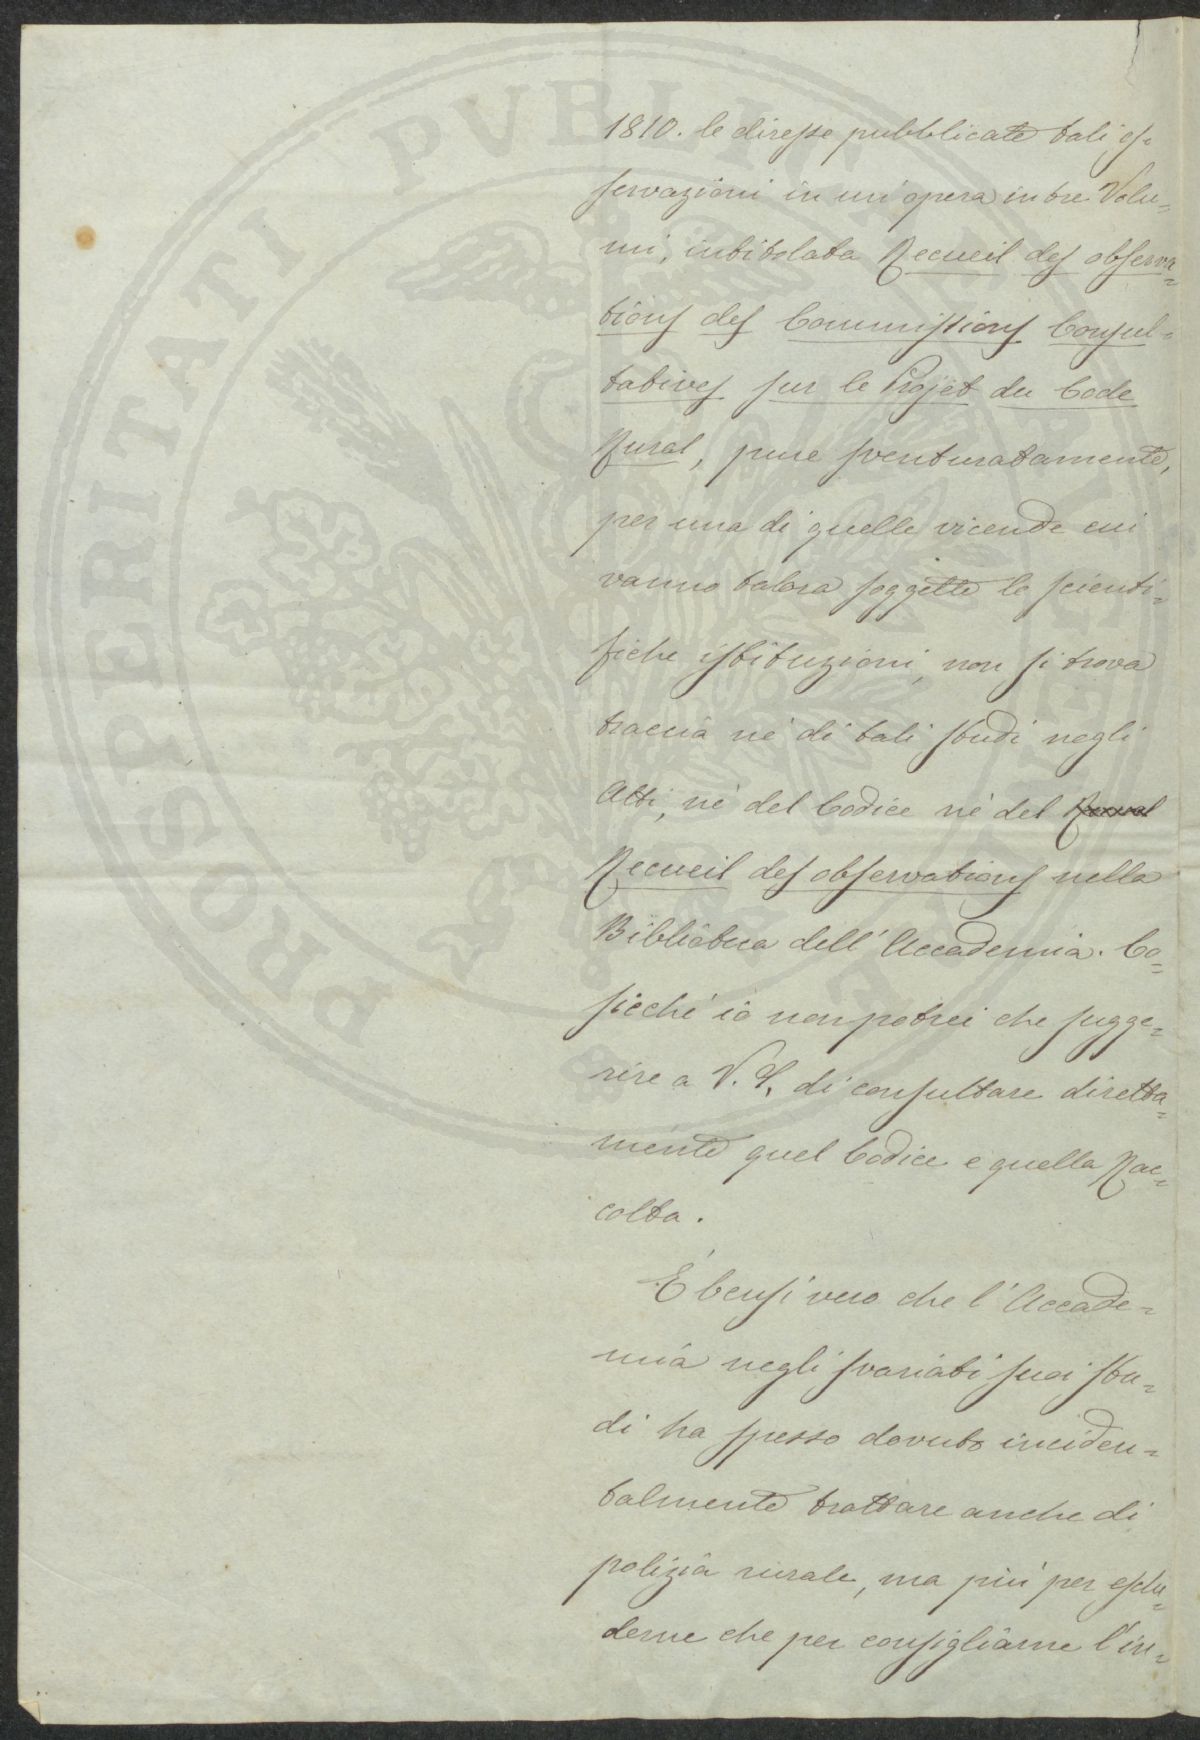 1810. le diresse pubblicate tali os-
servazioni in un'opera in tre Volu=
mi, intitolata Recueil des observa=
tions des Commissions Consul=
tatives sur le Projet du Code
Rural, pure sventuratamente,
per una di quelle vicende cui
vanno talora soggette le scienti=
fiche istituzioni, non si trova
traccia nè di tali studi negli
Atti, nè del Codice nè del Rural
Recueil des observations nella
Biblioteca dell'Accademia. Co=
sicché io non potrei che sugge=
rire a V. S. di consultare diretta=
mente quel Codice e quella Rac=
colta.
È bensì vero che l'Accade=
mia negli svariati suoi stu=
di ha spesso dovuto inciden=
talmente trattare anche di
polizia rurale, ma più per esclu=
derne che per consigliarne l'in=
PROSPERITATI PVBLICAE